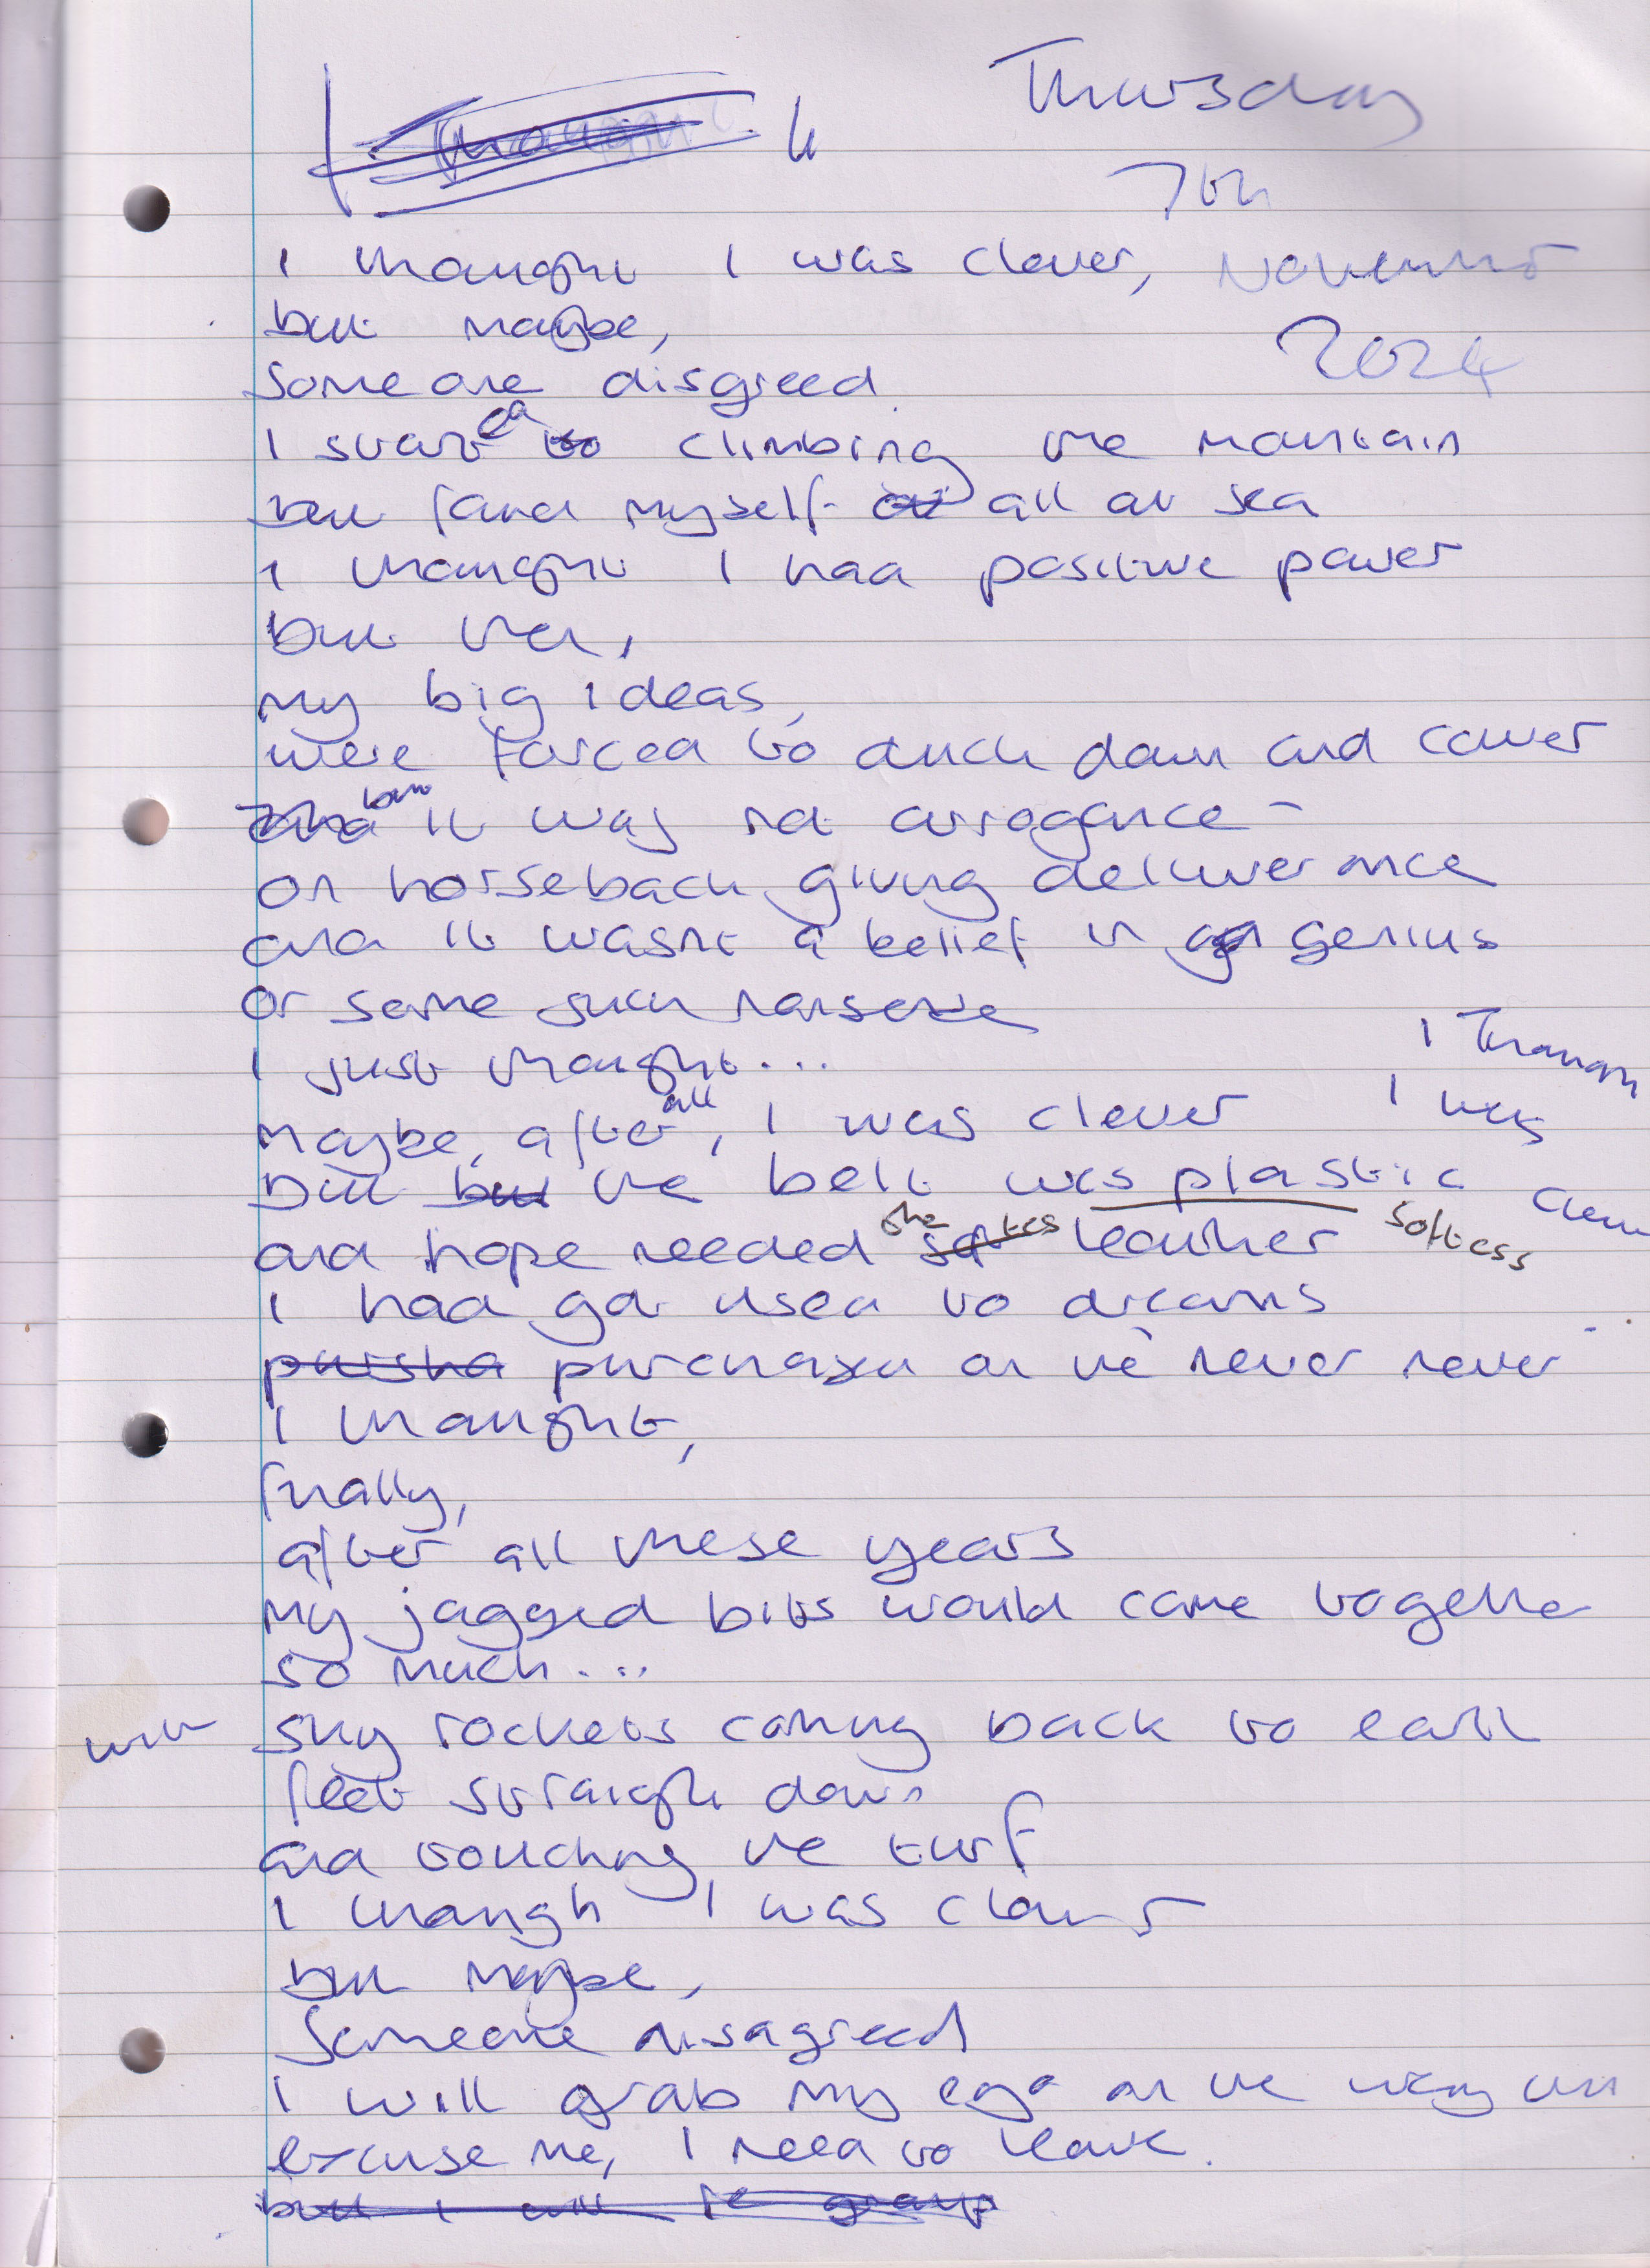 Thursday
7th
November
2024
I thought I was clever,
but maybe,
someone disgreed.
I started to climbing the mountain
but found myself at all at sea
I thought I had positive power
but then,
my big ideas,
were forced to duck down and cower
and but it was not arrogance -
on horseback giving deliverance
and it wasnt a belief in genius
or some such nonsense
I just thought...
maybe, after all, I was clever
but but the belt was plastic
and hope needed the leather softness
I thought
I was
clever
I had got used to dreams
pursha purchased on the never never
I thought,
finally,
after all these years
my jagged bits would come together
so much...
with sky rockets coming back to earth
feet straight down
and touching the turf
I though I was clever
but maybe,
someone disagreed
I will grab my ego on the way out
excuse me, I need to leave.
but I will re group